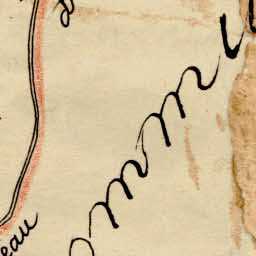 ommu
eau